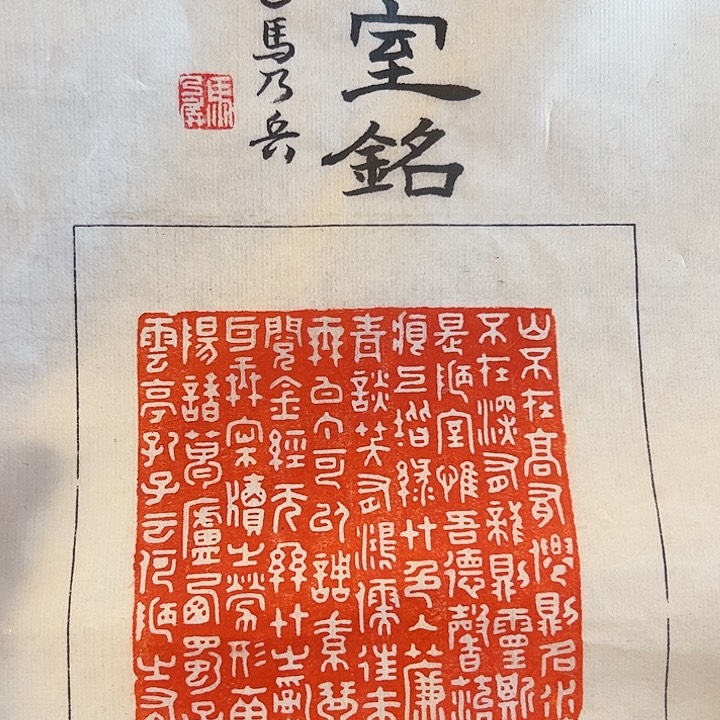 室銘
馬乃兵
山不在高有僊則名水
不在深有龍則靈斯
是陋室惟吾德馨苔
痕上階綠艸色入簾
青談笑有鴻儒往來
無白丁可以調素琴
閱金經无絲竹之亂
耳無案牘之勞形南
陽諸葛廬西蜀子
雲亭孔子云何陋之有